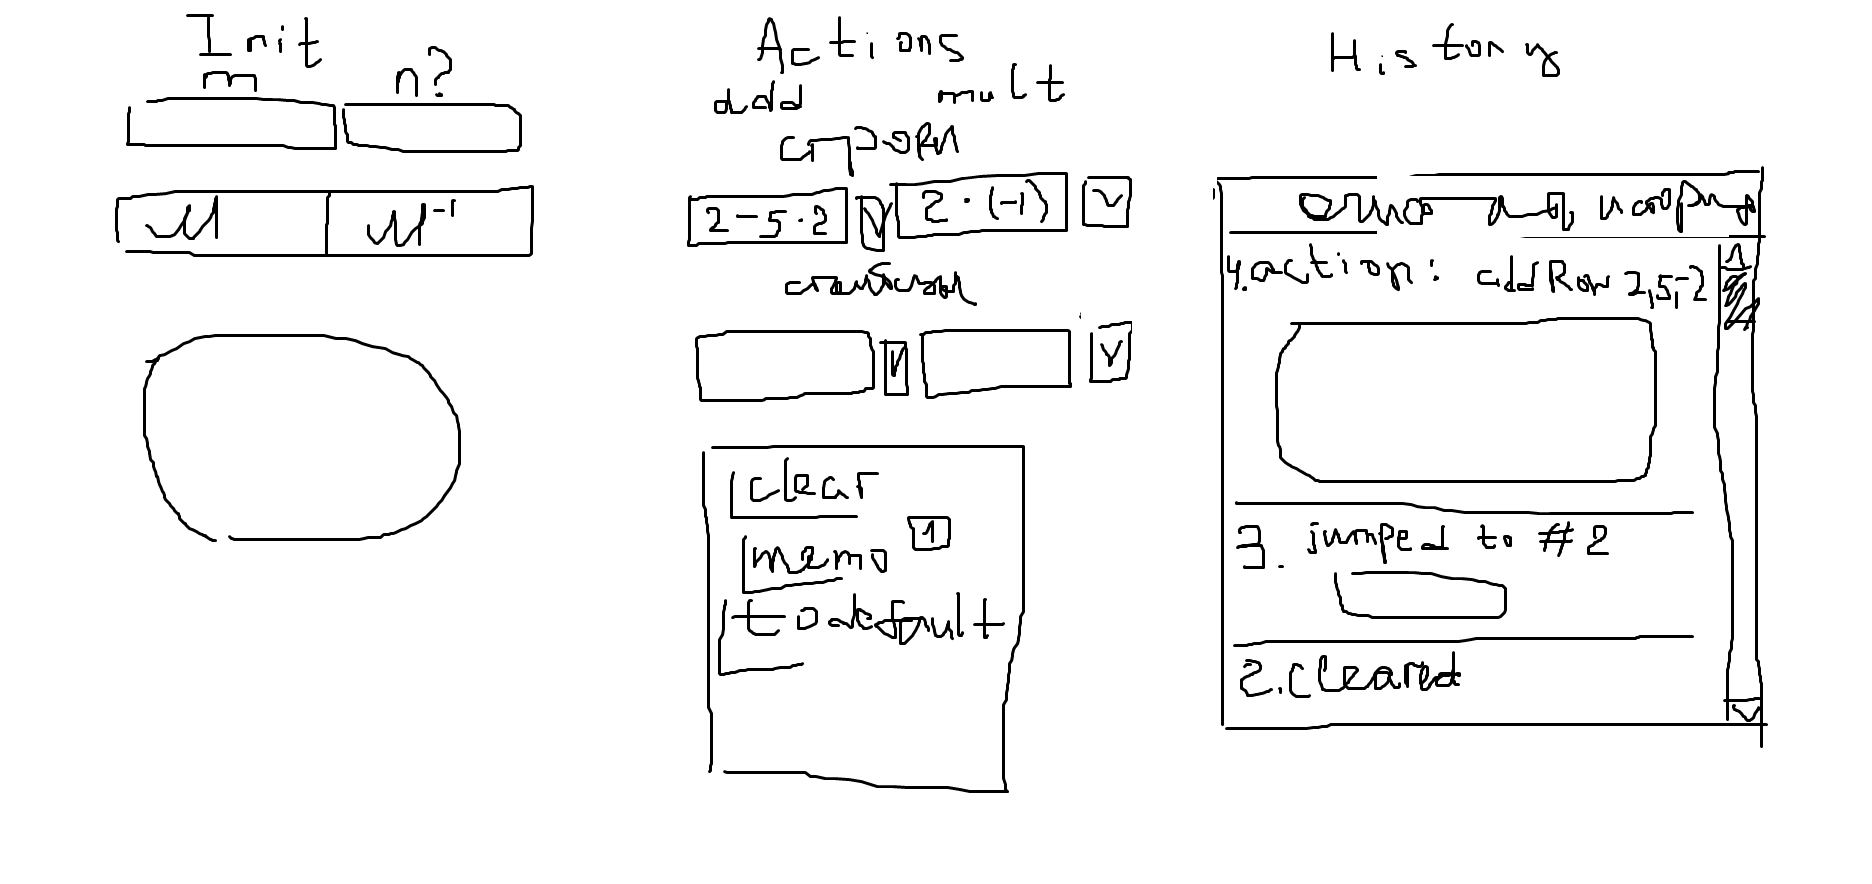 Init
m n?
M M⁻¹
Actions
add mult
строки
2-5·2 V 2·(-1) V
V V
clear
memo 1
to default
History
4. action: addRow 2,5,-2
3. jumped to #2
2. cleared